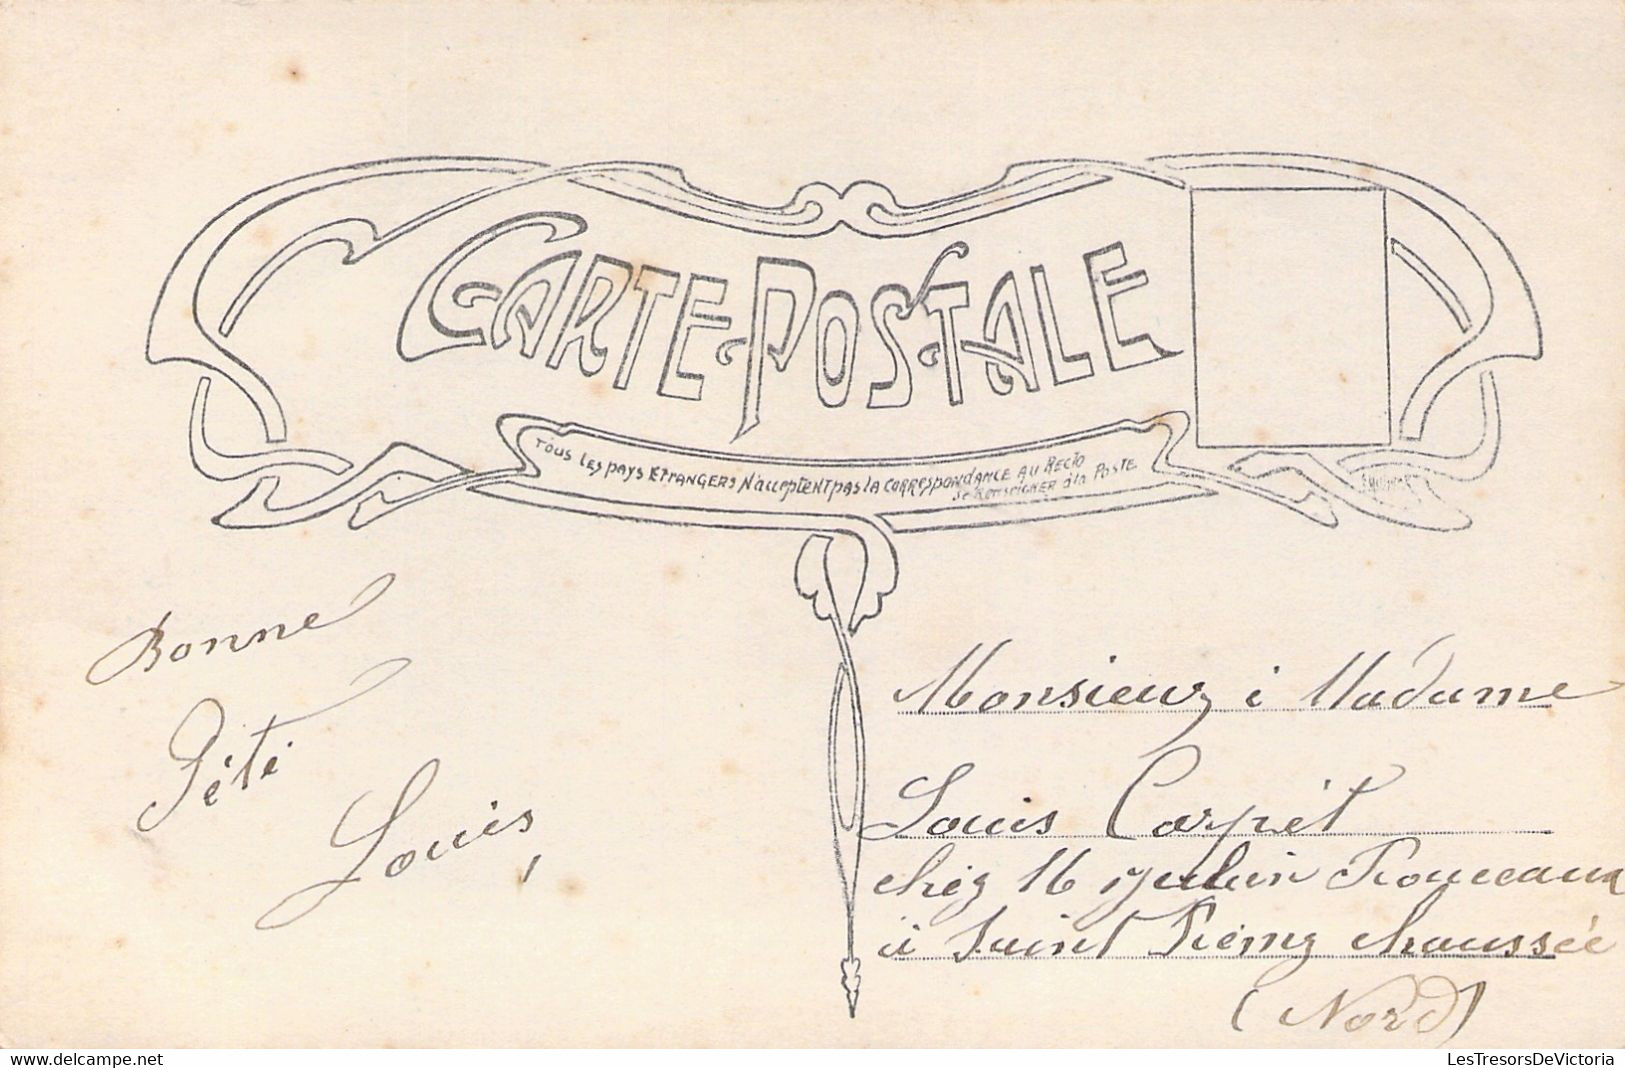 CARTE-POSTALE
TOUS LES PAYS ETRANGERS N'acceptent pas la CORRESPONDANCE AU RECTO
Se Renseigner à la POSTE
Bonne
Fête
Louis,
Monsieur é Madame
Louis Carpét
chez M Julien Rouceaux
à Saint Rémy chaussée
(Nord)
LesTresorsDeVictoria